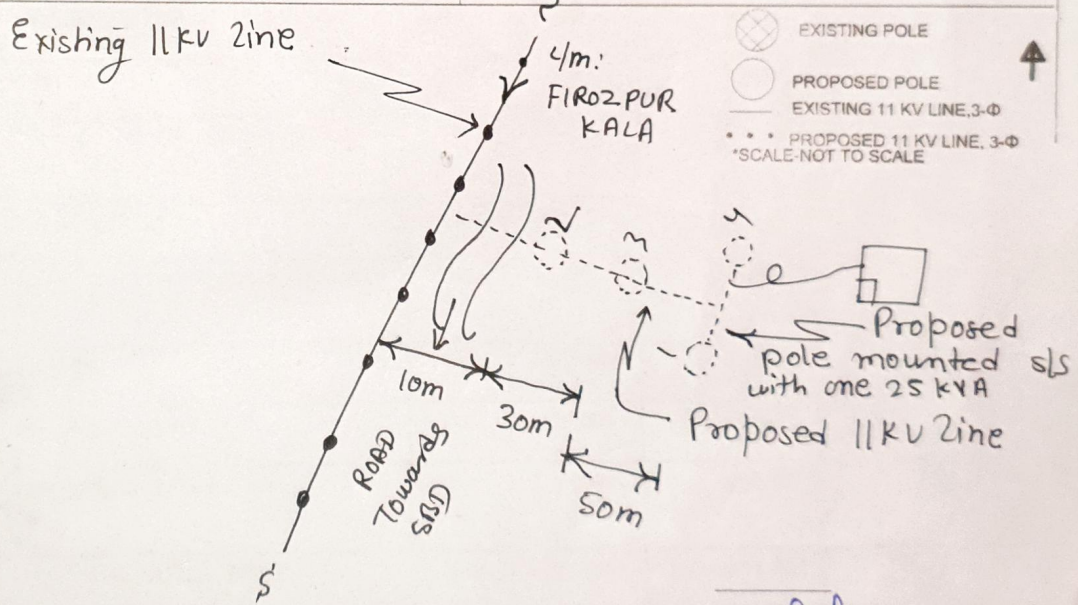 Existing 11KV Line
L/m:
FIROZPUR
KALA
EXISTING POLE
PROPOSED POLE
EXISTING 11 KV LINE,3-Φ
PROPOSED 11 KV LINE, 3-Φ
*SCALE-NOT TO SCALE
Proposed
pole mounted s/s
with one 25 KVA
Proposed 11KV Line
10m
30m
50m
ROAD
Towards
SBD
S